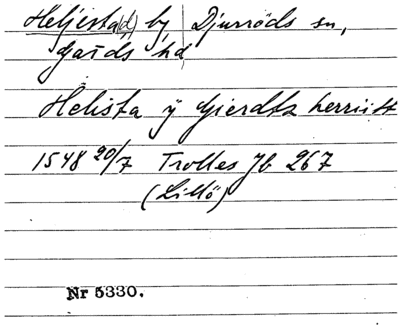 Heljesta(d) by Djurröds sn,
Gärds hd
Helista ÿ Gierdtz herriitt
1548 20/7 Trolles Jb 267
(Lillö)
Nr 5330.